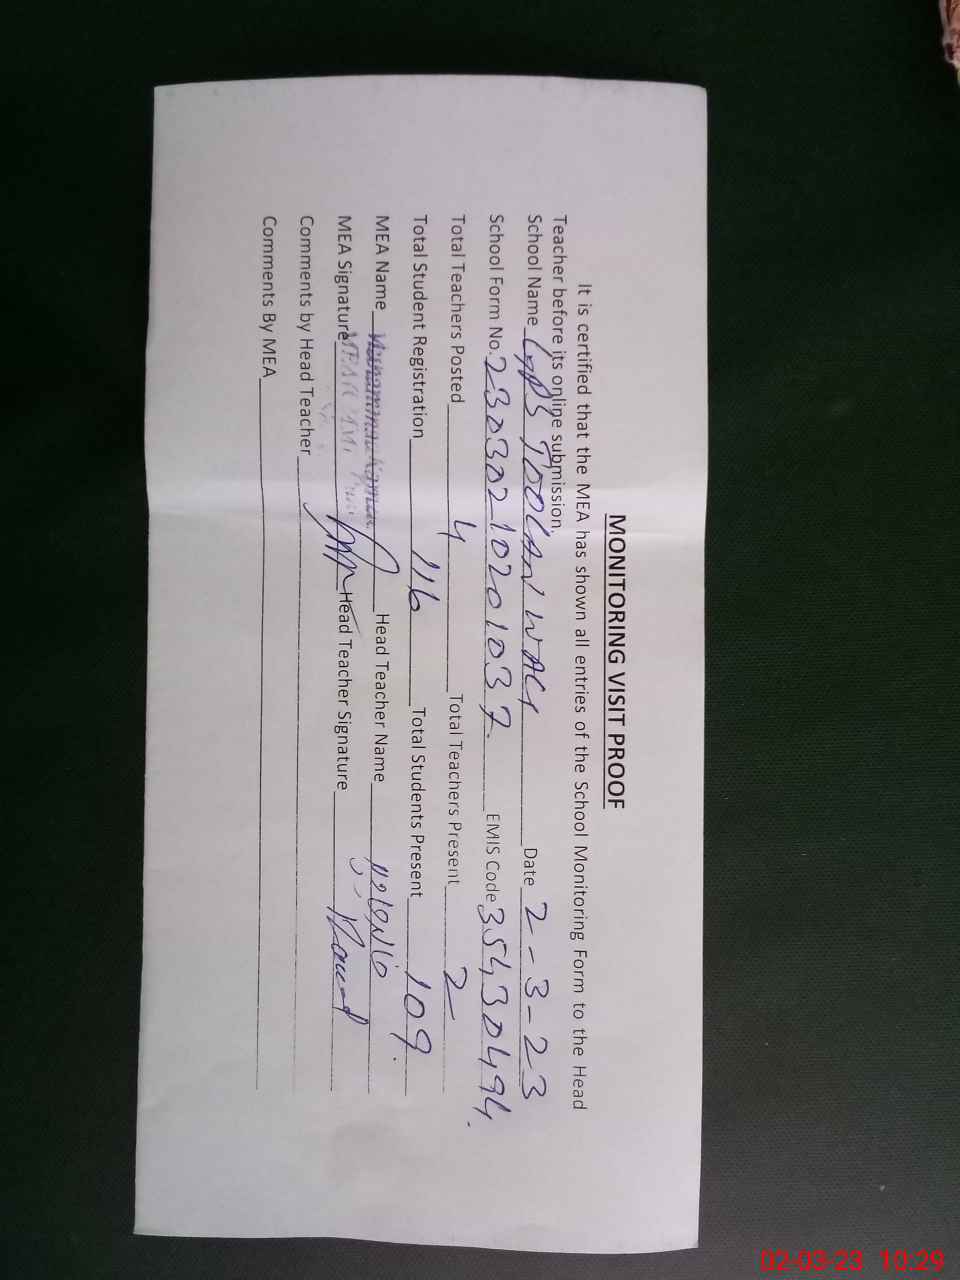 MONITORING VISIT PROOF
It is certified that the MEA has shown all entries of the School Monitoring Form to the Head
Teacher before its online submission.
School Name GPS TOOLAN WALI Date 2-3-23
School Form No. 23030210201037. EMIS Code 35430494.
Total Teachers Posted 4 Total Teachers Present 2
Total Student Registration 116 Total Students Present 109.
MEA Name Head Teacher Name
MEA Signature Head Teacher Signature
Comments by Head Teacher
Comments By MEA
02-03-23 10:29